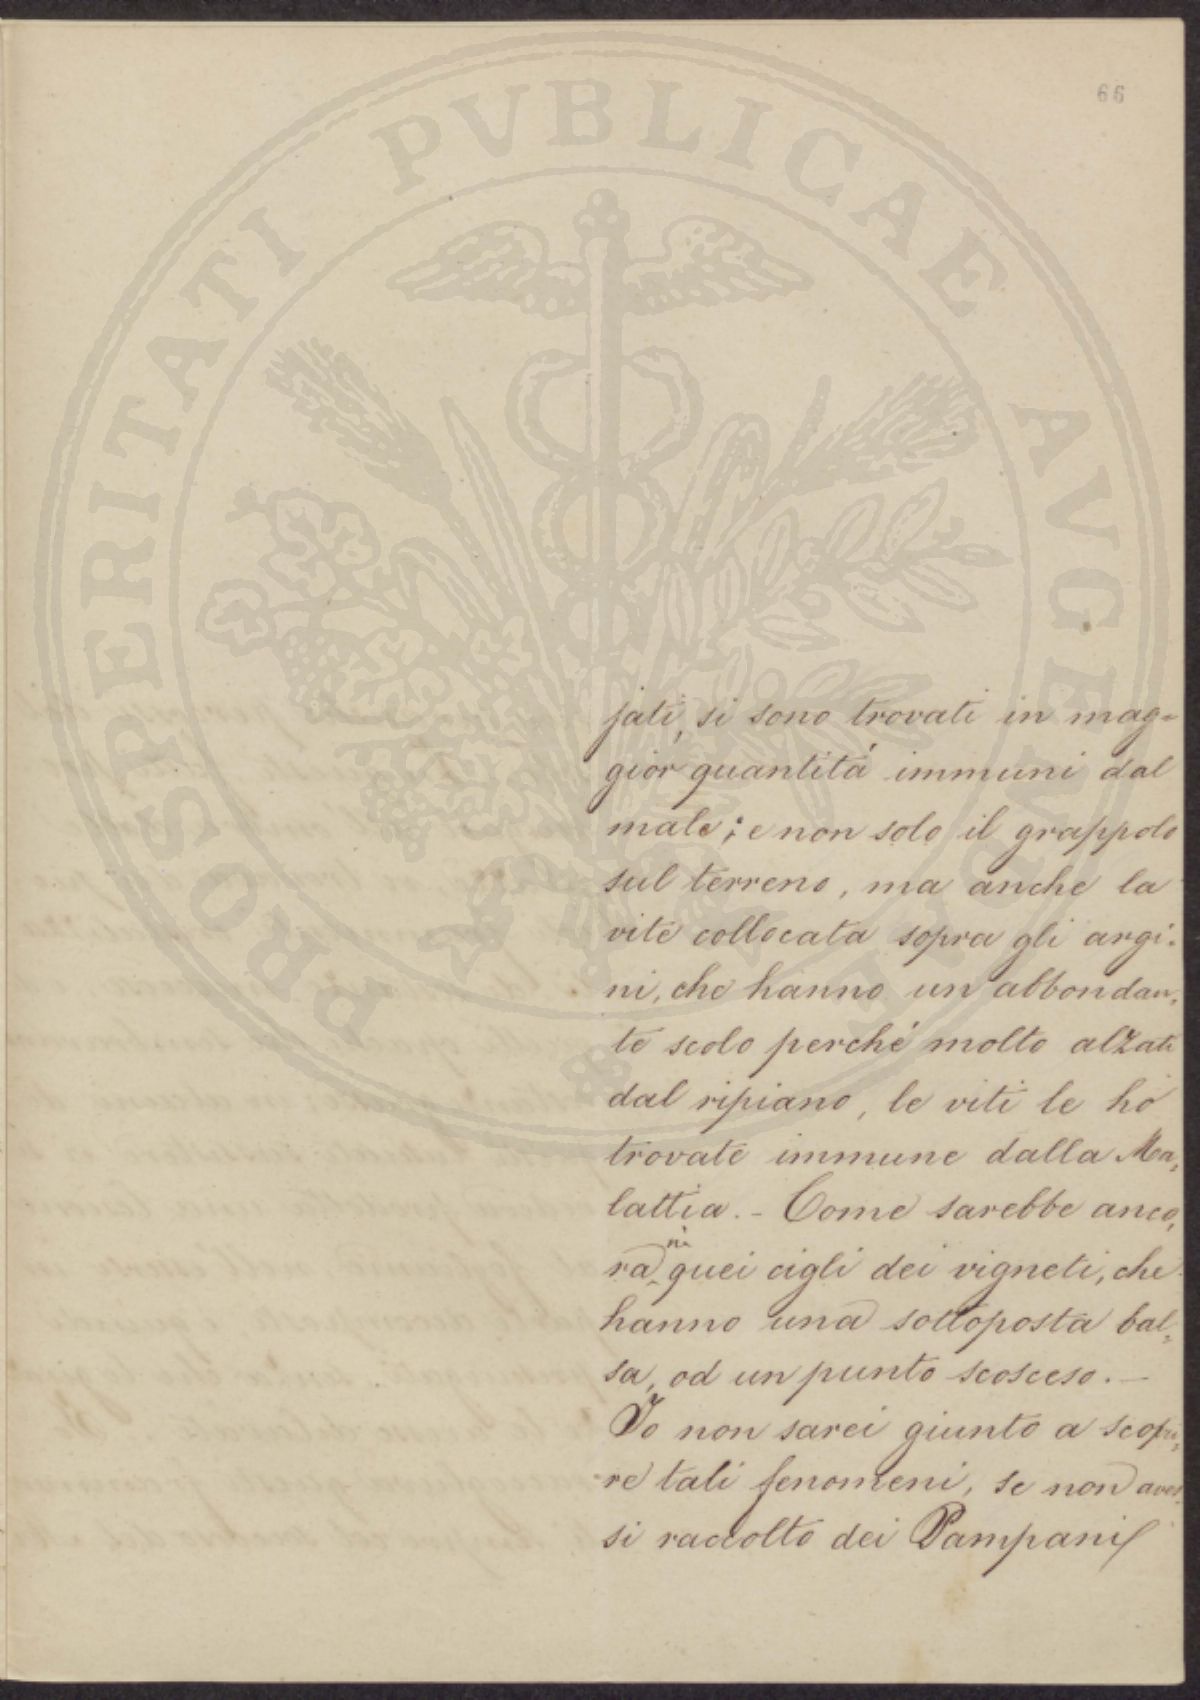 66
PROSPERITATI PVBLICAE AVGENDAE
jati, si sono trovati in mag=
gior quantitá immuni dal
male; e non solo il grappolo
sul terreno, ma anche la
vite collocata sopra gli argi=
ni, che hanno un abbondan=
te scolo perché molto alzati
dal ripiano, le viti le hó
trovate immune dalla Ma=
lattia. - Come sarebbe anco=
ra ni quei cigli dei vigneti, che
hanno una sottoposta bal=
sa, od un punto scosceso. -
Io non sarei giunto a scopri=
re tali fenomeni, se non aves=
si raccolto dei Pampani